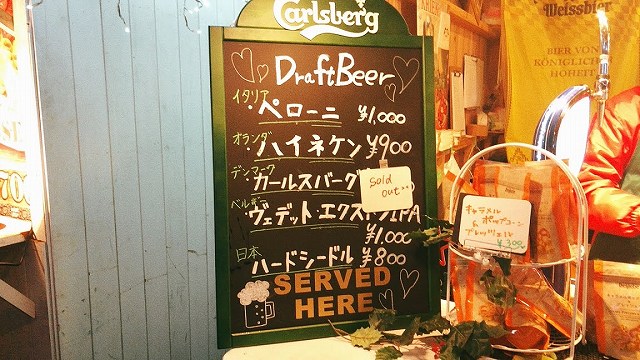 Carlsberg
Draft Beer
イタリア
・ペローニ ¥1,000
オランダ
・ハイネケン ¥900
デンマーク
・カールスバーグ
sold out...
ベルギー
・ヴェデット・エクストラIPA
¥1,000
日本
ハードシードル ¥800
SERVED
HERE
Weissbier
BIER VON
KÖNIGLICHER
HOHEIT
キャラメル
ポップコーン
&
プレッツェル
¥300